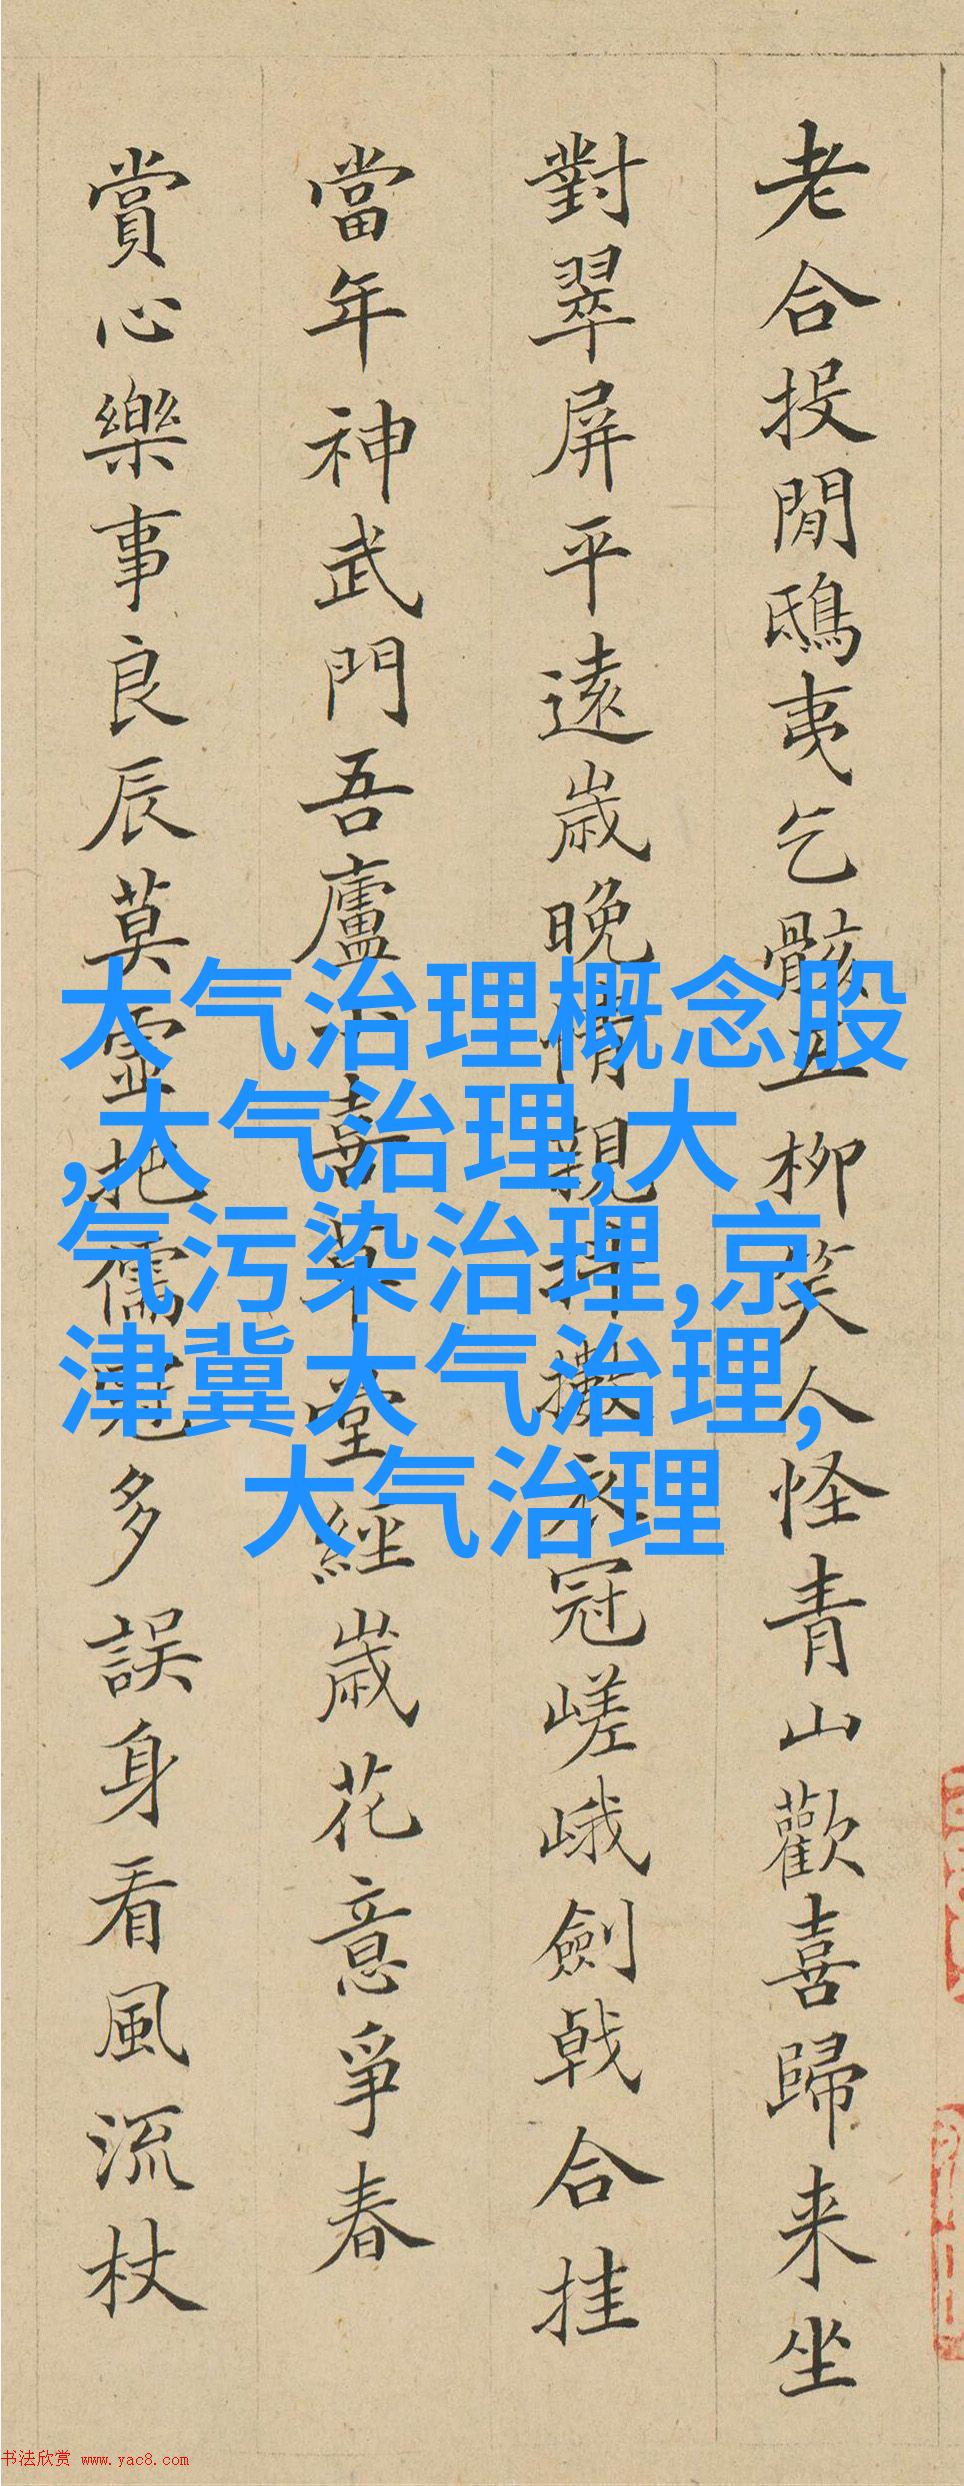 老合投閒鴟夷乞骸五柳笑人怪青山歡喜歸来坐
對翠屏平遠歲晚情親抖擻衣冠嵯峨劍戟合挂
當年神武門吾廬喜草堂經歲花意爭春
賞心樂事良辰莫虛把儒冠多誤身看風流杖
大气治理概念股
,大气治理,大
气污染治理,京
津冀大气治理,
大气治理
书法欣赏 www.yac8.com